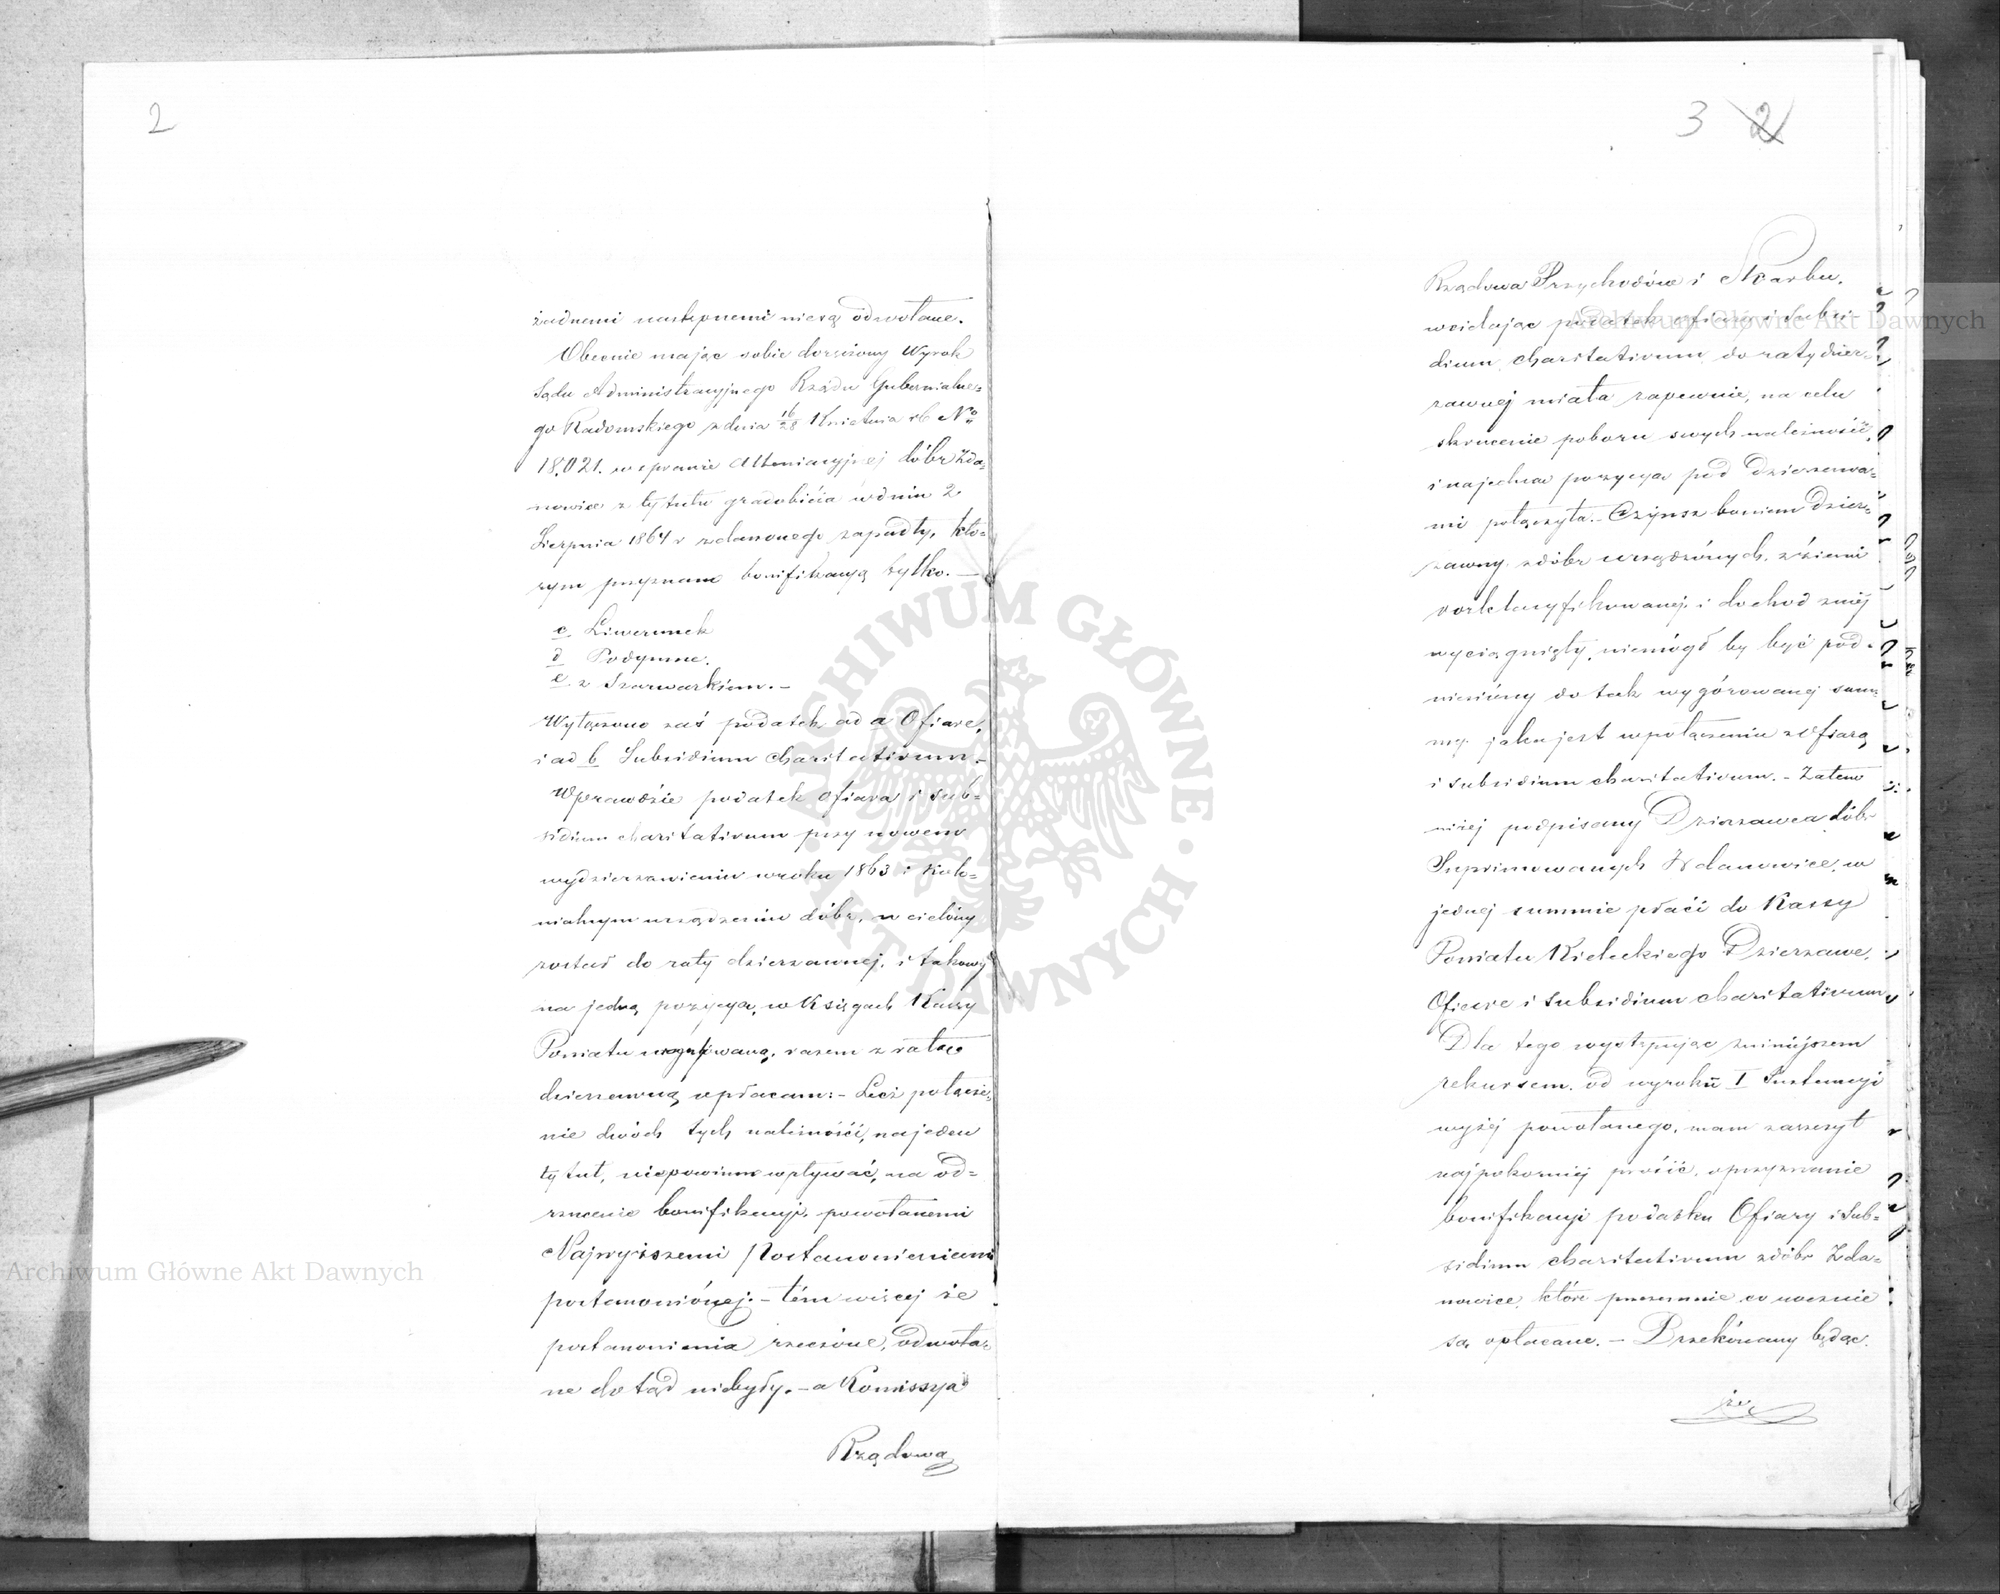 2
żadnemi następnemi nie są odwołane.
Obecnie mając sobie doręczony Wyrok
Sądu Administracyjnego Rządu Gubernialne=
go Radomskiego z dnia 16/28 Kwietnia rb No
18,021. w sprawie Attenuacyjnej dóbr Zda=
nowice z tytułu gradobicia w dniu 2
Sierpnia 1864 r zdarzonego zapadły, któ=
rym przyznano bonifikacyą tylko. —
c. Liwerunek
d Podymne.
e. z Szarwarkiem. —
Wyłączono zaś podatek ad a Ofiarę,
i ad b Subsidium charitativum. —
Wprawdzie podatek ofiara i sub=
sidium charitativum przy nowem
wydzierżawieniu w roku 1863 i kolo=
nialnym urządzeniu dóbr, wcielony
został do raty dzierżawnej, i takowy
na jedną pozycyą, w Księgach Kassy
Powiatu uregulowaną, razem z ratą
dzierżawną wpłacam: — Lecz połącze=
nie dwóch tych należności, na jeden
tytuł, niepowinno wpływać, na od=
rzucenie bonifikacyi, powołanemi
Najwyższemi Postanowieniami
postanowionéj. — tém więcej że
postanowienia rzeczone, odwoła=
ne dotąd niebyły. — a Kommissya
Rządowa
3 2
Rządowa Przychodów i Skarbu,
wcielając podatek ofiara i subsi=
dium charitativum do raty dzier=
żawnej miała zapewnie, na celu
skrócenie poboru swych należności,
i na jedną pozycyą pod dzierżawa=
mi połączyła. — Czynsz bowiem dzier=
żawny z dóbr urządzonych, z ziemi
rozklasyfikowanej i dochod z niéj
wyciągnięty, niemógł by być pod=
niesiony do tak wygórowanej sum=
my. jaka jest w połączeniu z Ofiarą
i subsidium charitativum. — Zatem
niżej podpisany Dzierzawca dóbr
Suprimowanych Zdanowice, w
jednej summie płaci do Kassy
Powiatu Kieleckiego Dzierzawę,
Ofiarę i subsidium charitativum
Dla tego występując z niniejszem
rekursem, od wyroku I Instancyi
wyżéj powołanego, mam zaszczyt
najpokorniej prosić, o przyznanie
bonifikacyi podatku Ofiary i Sub=
sidium charitativum z dóbr Zda=
nowice, które przezemnie corocznie
są opłacane. — Przekónany będąc,
że
Archiwum Główne Akt Dawnych
Archiwum Główne Akt Dawnych
ARCHIWUM GŁÓWNE AKT DAWNYCH